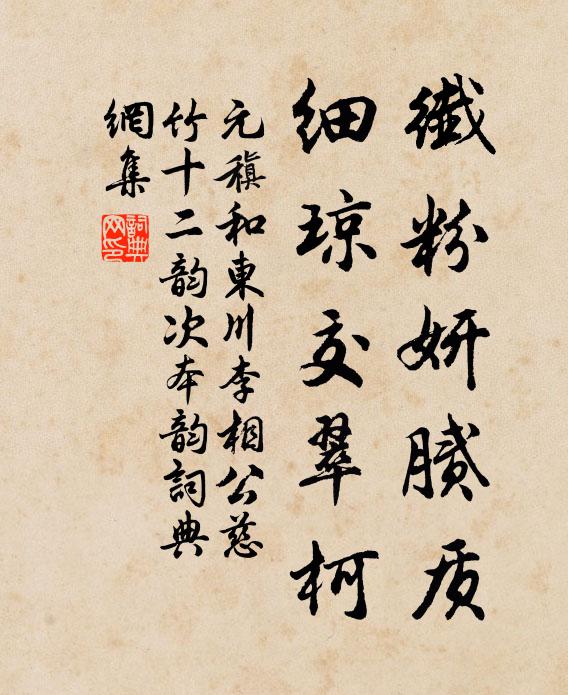 纖粉妍膩质
细琼交翠柯
元稹和東川李相公慈
竹十二韵次本韵詞典
網集
詞典
网印